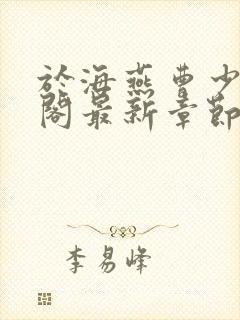 於海燕曹少
閣最新章節
李易峰